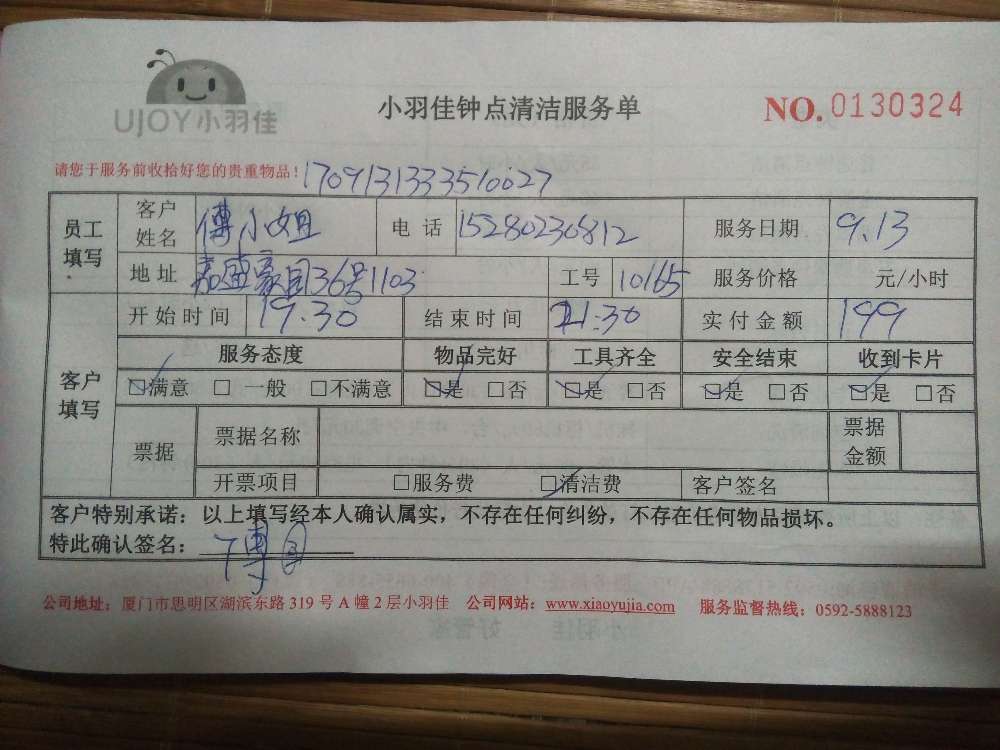 UJOY小羽佳
小羽佳钟点清洁服务单
NO.0130324
请您于服务前收拾好您的贵重物品!
1709131333510027
员工填写 客户姓名 傅小姐 电话 15280230812 服务日期 9.13
地址 嘉盛豪园36号1103 工号 10165 服务价格 元/小时
客户填写 开始时间 19.30 结束时间 21:30 实付金额 199
服务态度 物品完好 工具齐全 安全结束 收到卡片
☑满意 □一般 □不满意 ☑是 □否 ☑是 □否 ☑是 □否 ☑是 □否
票据 票据名称 票据金额
开票项目 □服务费 ☑清洁费 客户签名
客户特别承诺：以上填写经本人确认属实，不存在任何纠纷，不存在任何物品损坏。
特此确认签名：
公司地址：厦门市思明区湖滨东路319号A幢2层小羽佳 公司网站：www.xiaoyujia.com 服务监督热线：0592-5888123